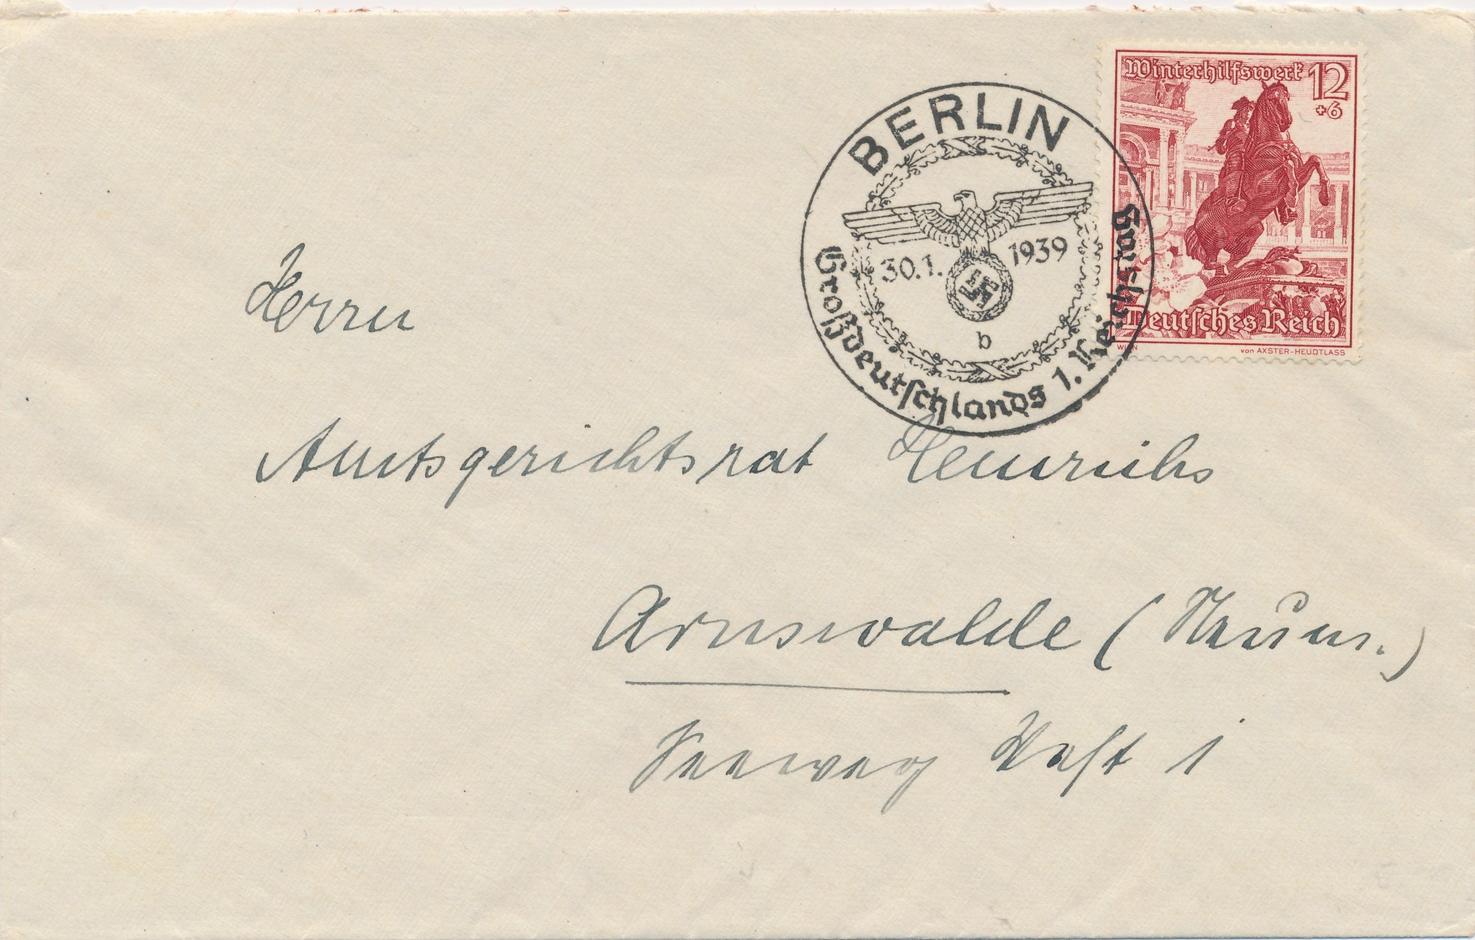 Winterhilfswerk 12
+6
Deutsches Reich
WIEN
von AXSTER-HEUDTLASS
BERLIN
30.1. 1939
b
Großdeutschlands 1. Reichstag
Herrn
Amtsgerichtsrat Heinrichs
Arnswalde (Neum.)
Seeweg West 1